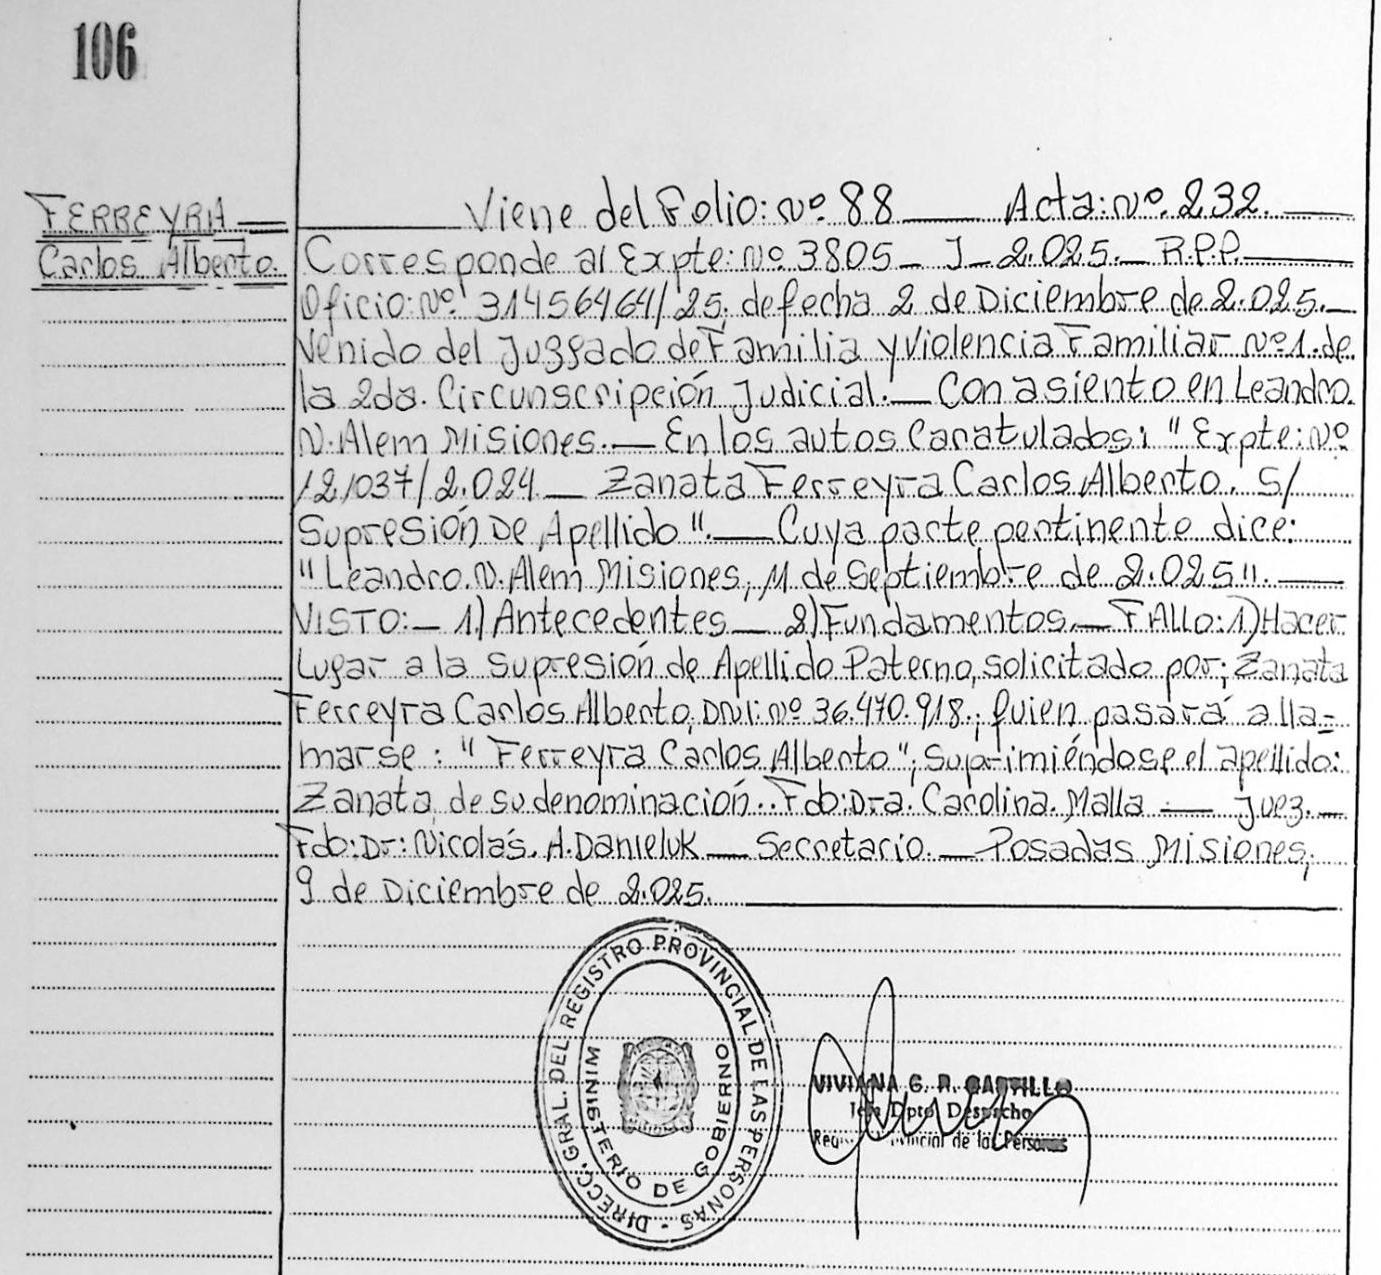 106
FERREYRA
Carlos Alberto.
Viene del Folio: Nº 88 — Acta: Nº. 232. —
Corresponde al Expte: Nº 3805 _ J _ 2.025. _ R.P.P. —
Oficio: Nº 31456464/25, de fecha 2 de Diciembre de 2.025. —
Venido del Juzgado de Familia y Violencia Familiar Nº 1. de
la 2da. Circunscripción Judicial. — Con asiento en Leandro.
N. Alem Misiones. — En los autos Caratulados: " Expte: Nº
121037/2.024 _ Zanata Ferreyra Carlos Alberto. S/
Supresión De Apellido". — Cuya parte pertinente dice:
"Leandro. N. Alem Misiones, 11 de Septiembre de 2.025". —
VISTO: _ 1) Antecedentes _ 2) Fundamentos. — FAllo: 1) Hacer
Lugar a la Supresión de Apellido Paterno, solicitado por; Zanata
Ferreyra Carlos Alberto, DNI: Nº 36.470.918., quien pasará a lla=
marse: " Ferreyra Carlos Alberto", Suprimiéndose el apellido:
Zanata, de su denominación.. Fdo: Dra. Carolina. Malla — Juez. —
Fdo: Dr: Nicolás. A. Danieluk — Secretario. — Posadas Misiones,
9 de Diciembre de 2.025.
DIRECC. GRAL. DEL REGISTRO PROVINCIAL DE LAS PERSONAS -
MINISTERIO DE GOBIERNO
VIVIANA G. R. CASTILLO
Jefa Dpto Despacho
Provincial de las Personas